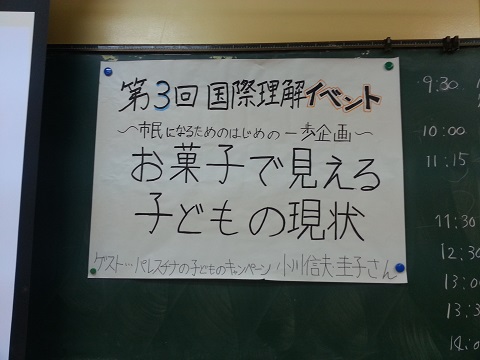 第3回国際理解イベント
～市民になるためのはじめの一歩企画～
お菓子で見える
子どもの現状
ゲスト…パレスチナの子どものキャンペーン 小川信夫・圭子さん
9:30
10:00
11:15
11:30
12:30